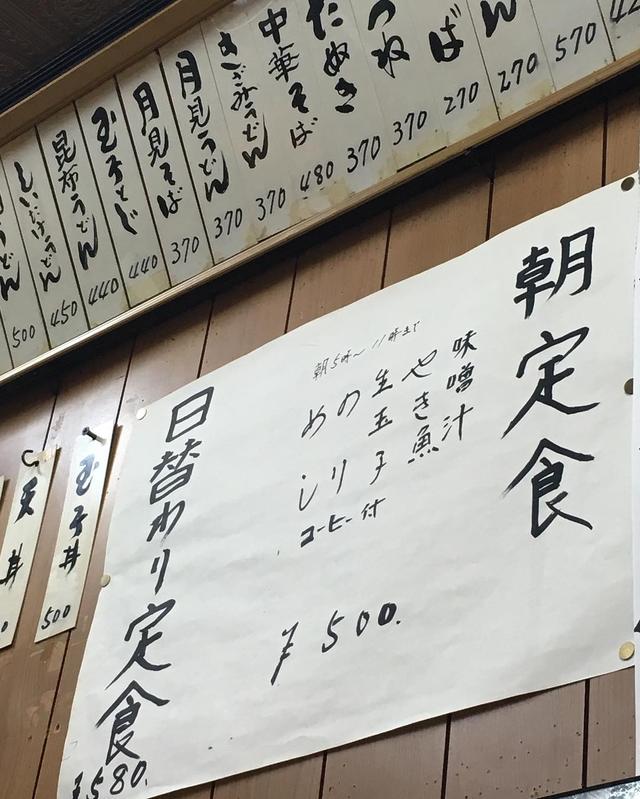 ん
570
ば
270
270
つね
370
たぬき
370
中華そば
480
きざみうどん
370
月見うどん
370
月見そば
370
玉子とじ
440
昆布うどん
440
しいたけうどん
450
うどん
500
朝定食
味噌汁
やき魚
生玉子
のり
めし
コーヒー付
朝5時〜11時まで
¥500.
日替わり定食
¥580.
玉子丼
500
天丼